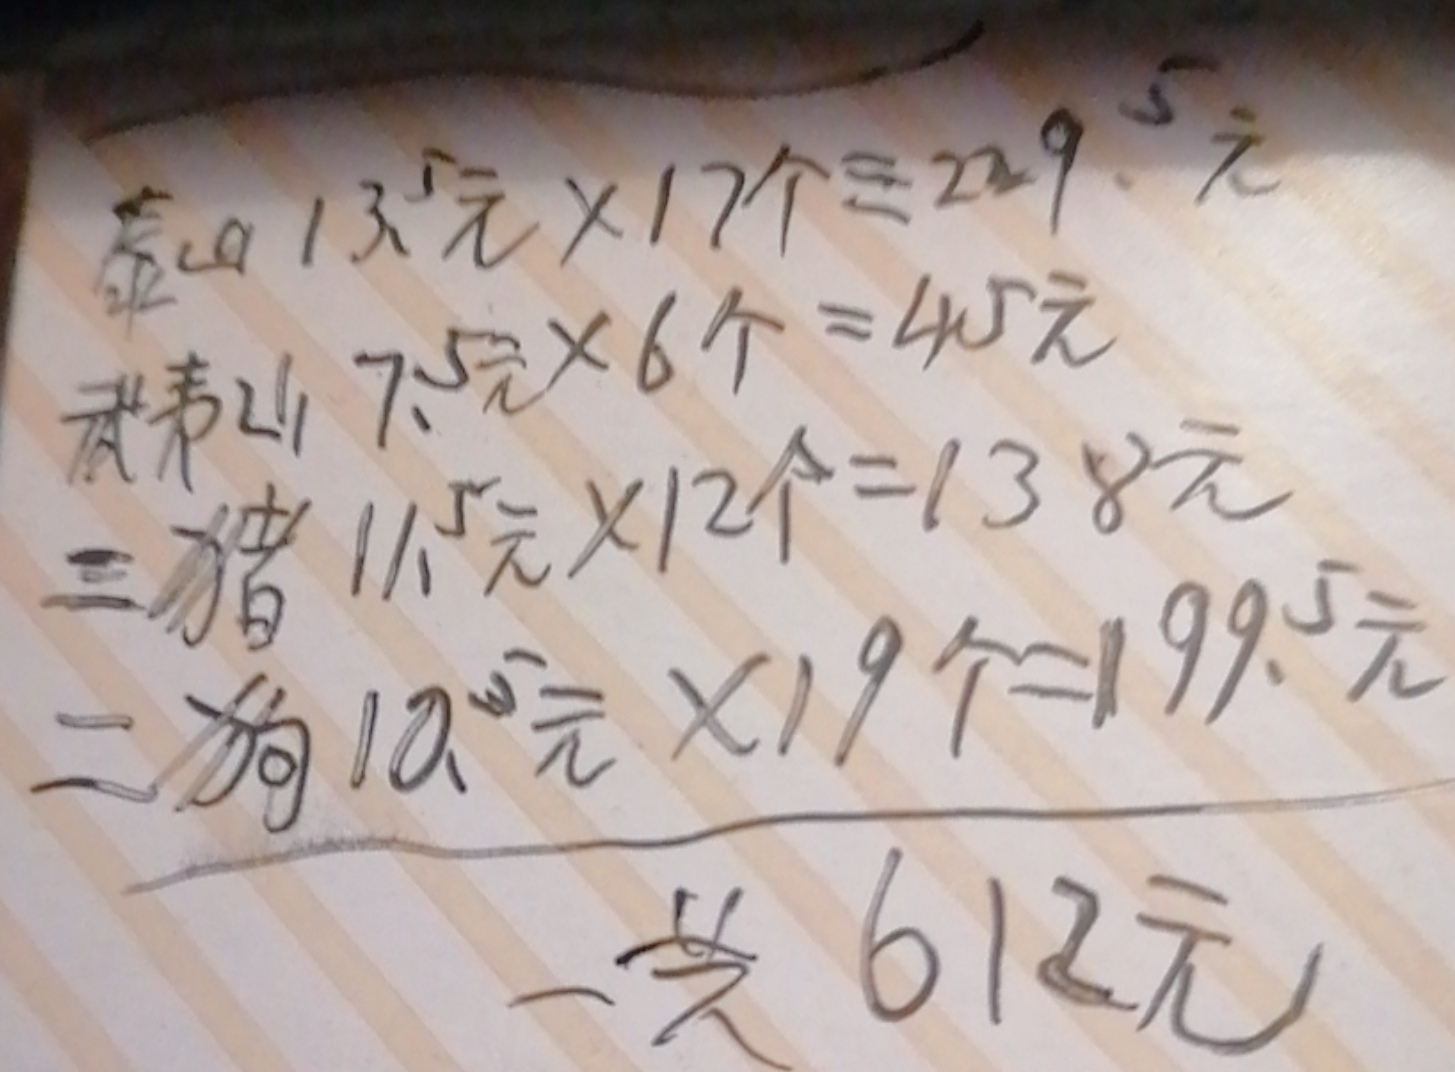 13.5元×17个=229.5元
7.5元×6个=45元
三猪 11.5元×12个=138元
二狗 10.5元×19个=199.5元
一共 612元